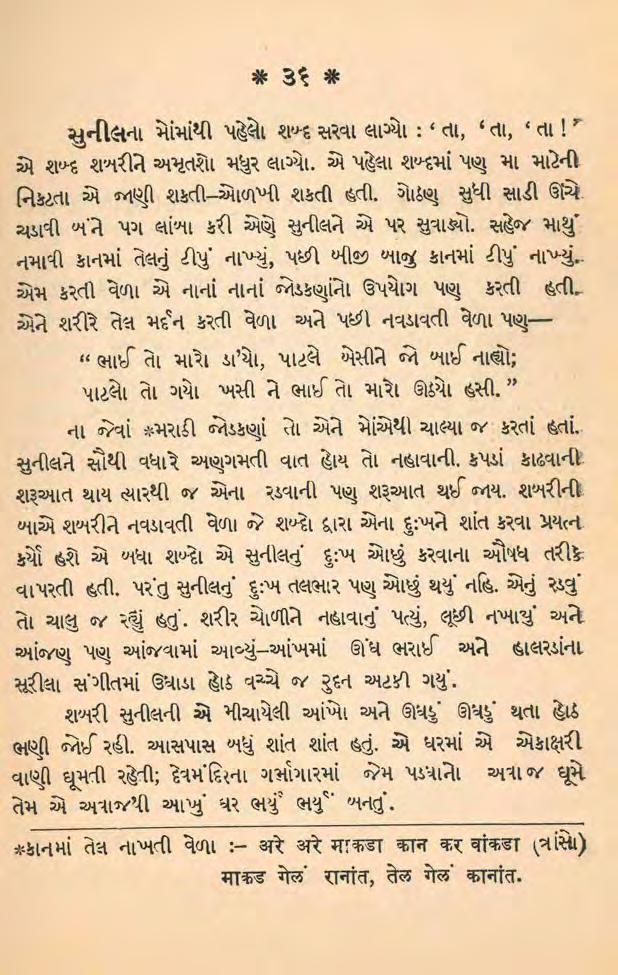 * ૩૬ *
સુનીલના મોંમાંથી પહેલો શબ્દ સરવા લાગ્યો : ‘તા, ‘તા, ‘તા !’
એ શબ્દ શબરીને અમૃતશો મધુર લાગ્યો. એ પહેલા શબ્દમાં પણ મા માટેની
નિકટતા એ જાણી શકતી–ઓળખી શકતી હતી. ગોઠણ સુધી સાડી ઊંચે
ચડાવી બંને પગ લાંબા કરી એણે સુનીલને એ પર સુવાડ્યો. સહેજ માથું
નમાવી કાનમાં તેલનું ટીપું નાખ્યું, પછી બીજી બાજુ કાનમાં ટીપું નાખ્યું.
એમ કરતી વેળા એ નાનાં નાનાં જોડકણાંનો ઉપયોગ પણ કરતી હતી.
એને શરીરે તેલ મર્દન કરતી વેળા અને પછી નવડાવતી વેળા પણ—
“ ભાઈ તો મારો ડા’યો, પાટલે બેસીને જો બાઈ નાહ્યો;
પાટલો તો ગયો ખસી ને ભાઈ તો મારો ઊઠ્યો હસી. ”
ના જેવાં *મરાઠી જોડકણાં તો એને મોંએથી ચાલ્યા જ કરતાં હતાં.
સુનીલને સૌથી વધારે અણગમતી વાત હોય તો નહાવાની. કપડાં કાઢવાની
શરૂઆત થાય ત્યારથી જ એના રડવાની પણ શરૂઆત થઈ જાય. શબરીની
બાએ શબરીને નવડાવતી વેળા જે શબ્દો દ્વારા એના દુઃખને શાંત કરવા પ્રયત્ન
કર્યો હશે એ બધા શબ્દો એ સુનીલનું દુઃખ ઓછું કરવાના ઔષધ તરીકે
વાપરતી હતી. પરંતુ સુનીલનું દુઃખ તલભાર પણ ઓછું થયું નહિ. એનું રડવું
તો ચાલુ જ રહ્યું હતું. શરીર ચોળીને નહાવાનું પત્યું, લૂછી નખાયું અને
આંજણ પણ આંજવામાં આવ્યું–આંખમાં ઊંઘ ભરાઈ અને હાલરડાંના
સૂરીલા સંગીતમાં ઉઘાડા હોઠ વચ્ચે જ રુદન અટકી ગયું.
શબરી સુનીલની એ મીચાયેલી આંખો અને ઊઘડું ઊઘડું થતા હોઠ
ભણી જોઈ રહી. આસપાસ બધું શાંત શાંત હતું. એ ઘરમાં એ એકાક્ષરી
વાણી ઘૂમતી રહેતી; દેવમંદિરના ગર્ભાગારમાં જેમ પડઘાનો અવાજ ઘૂમે
તેમ એ અવાજથી આખું ઘર ભર્યું ભર્યું બનતું.
*કાનમાં તેલ નાખતી વેળા :– अरे अरे माकडा कान कर वांकडा (ત્રાંસો)
माकड गेलं रानांत, तेल गेलं कानांत.